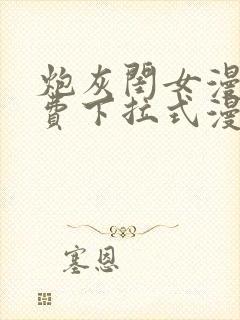 炮灰閨女漫
費下拉式漫
塞恩